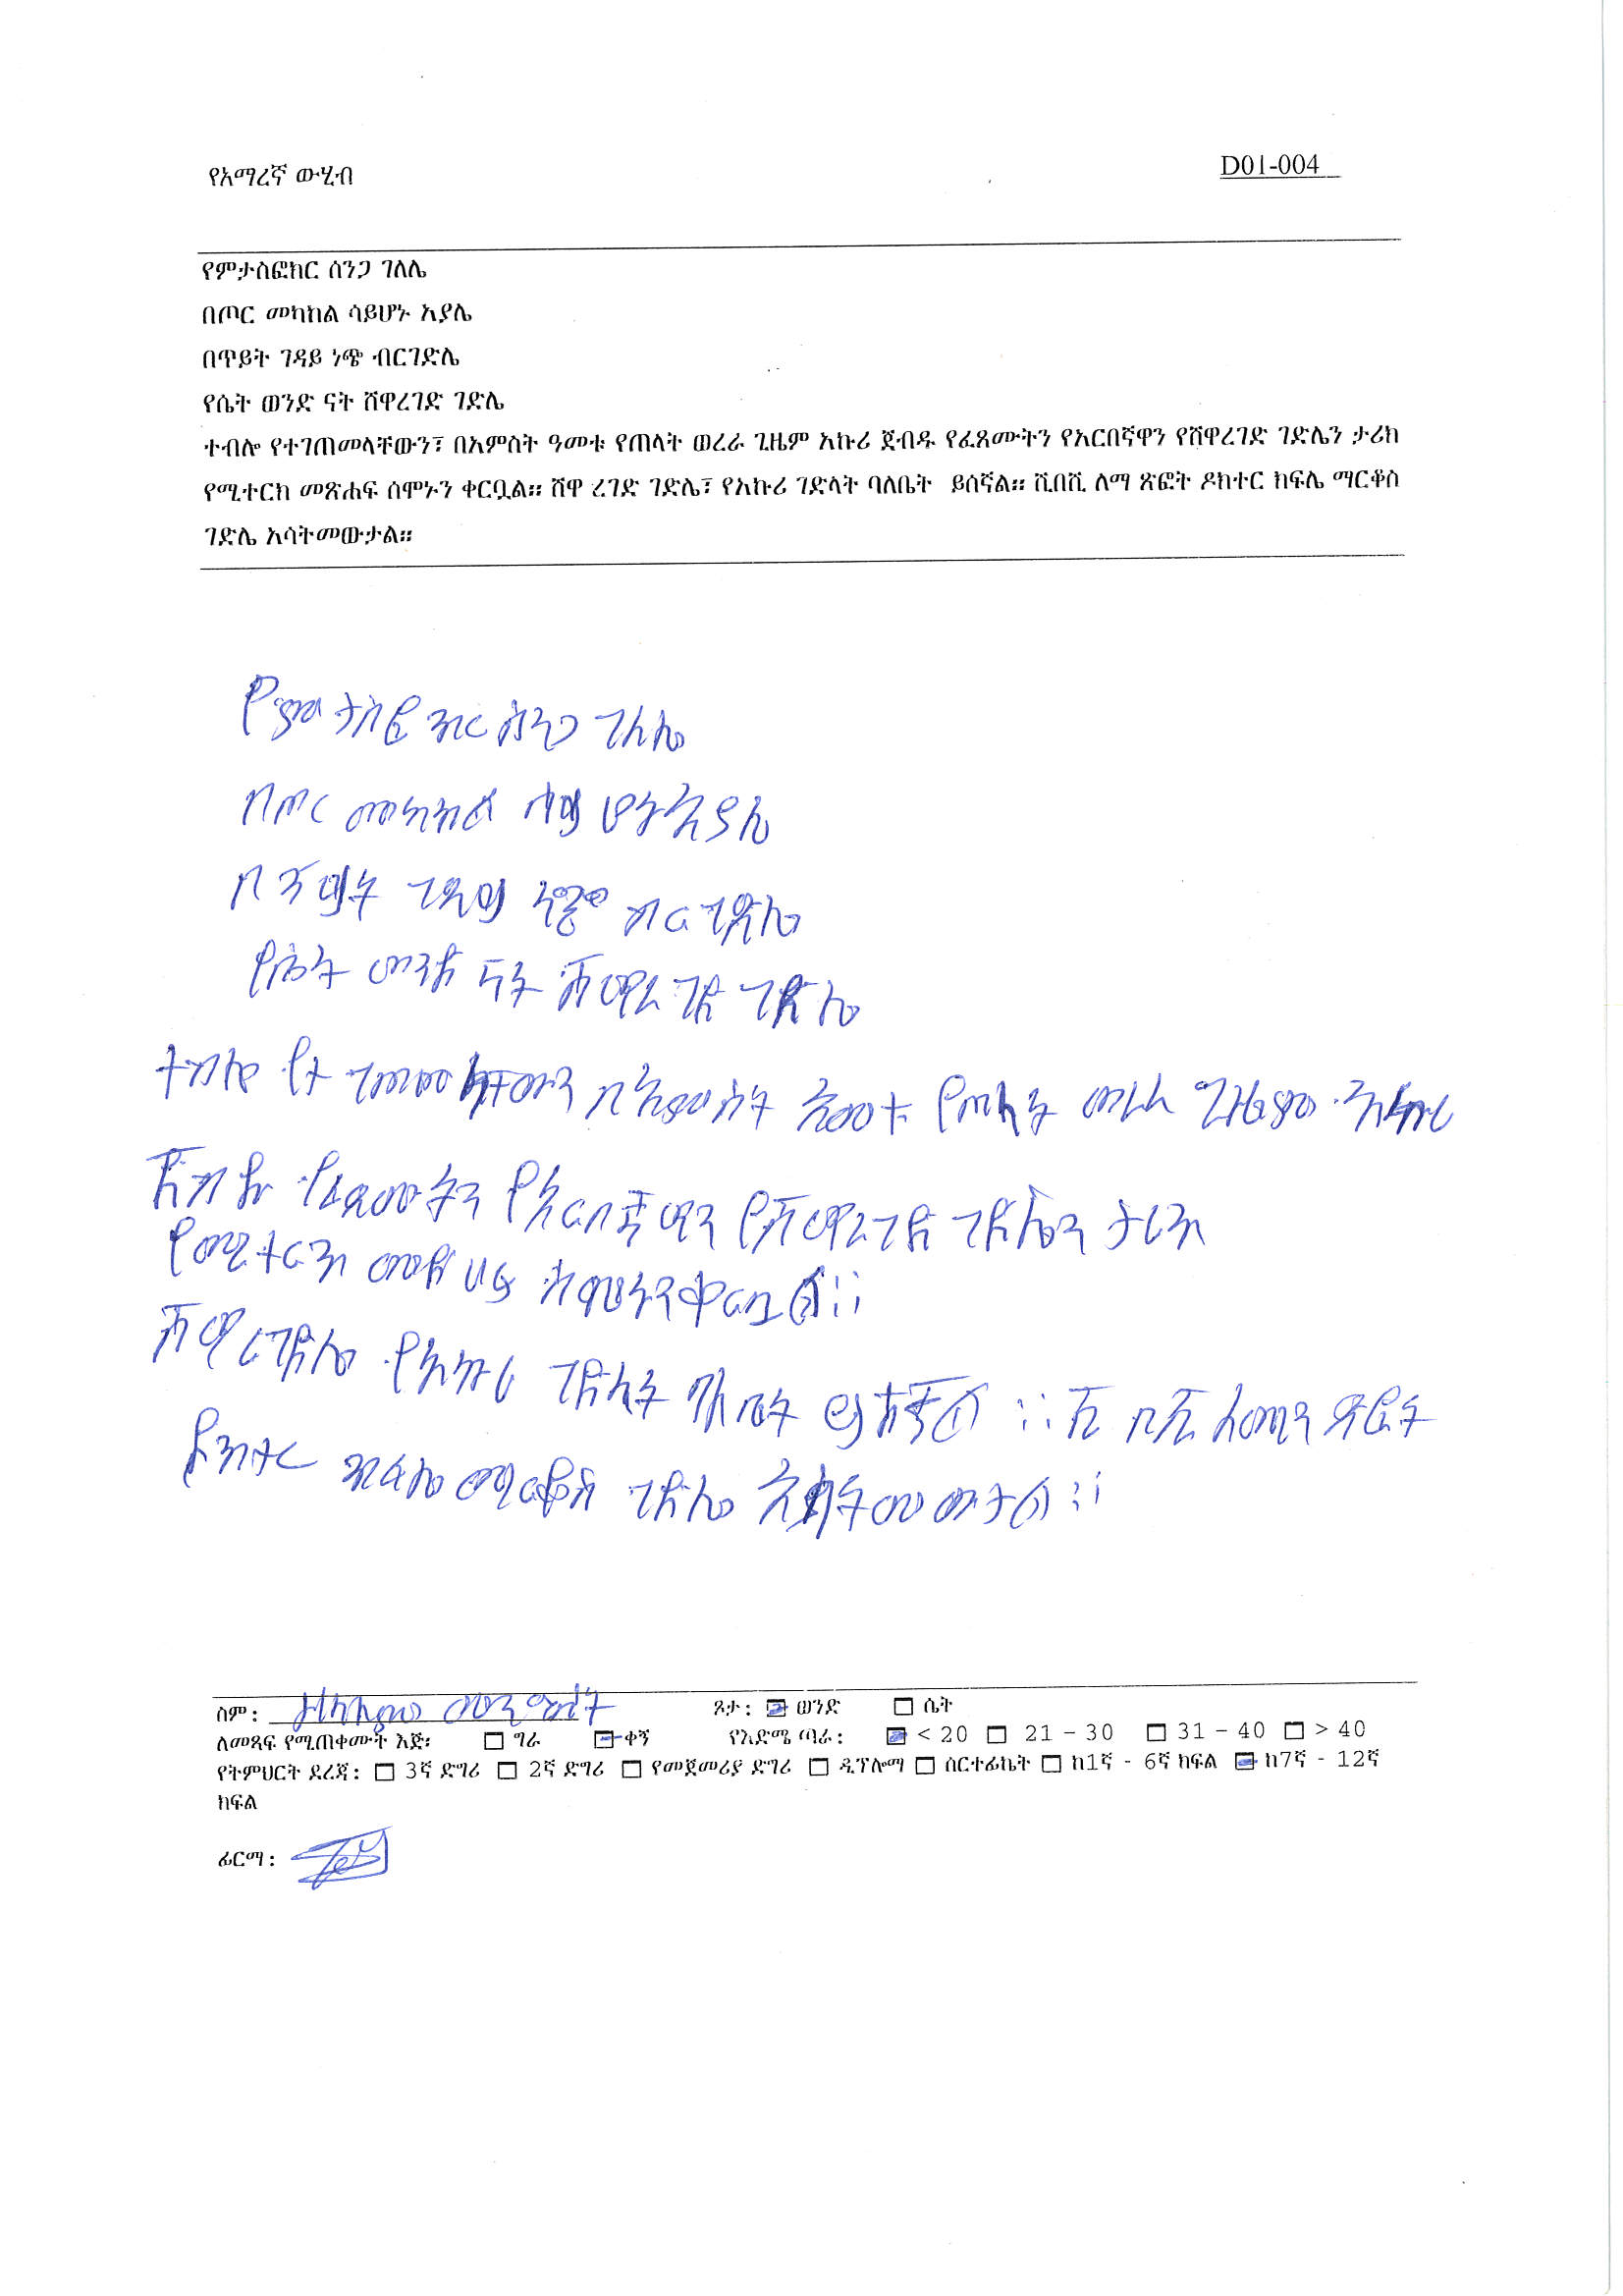 የአማረኛ ውሂብ D01-004
የምታስፎክር ሰንጋ ገለሌ
በጦር መካከል ሳይሆኑ አያሌ
በጥይት ገዳይ ነጭ ብርገድሌ
የሴት ወንድ ናት ሸዋረገድ ገድሌ
ተብሎ የተገጠመላቸውን፣ በአምስት ዓመቱ የጠላት ወረራ ጊዜም አኩሪ ጀብዱ የፈጸሙትን የአርበኛዋን የሸዋረገድ ገድሌን ታሪክ
የሚተርክ መጽሐፍ ሰሞኑን ቀርቧል። ሸዋ ረገድ ገድሌ፣ የአኩሪ ገድላት ባለቤት ይሰኛል። ሺበሺ ለማ ጽፎት ዶክተር ክፍሌ ማርቆስ
ገድሌ አሳትመውታል።
የምታስፎክር ሰንጋ ገለሌ
በጦር መካከል ሳይሆኑ አያሌ
በጥይት ገዳይ ነጭ ብርገድሌ
የሴት ወንድ ናት ሸዋረገድ ገድሌ
ተብሎ የተገጠመላቸውን በአምስት አመቱ የጠላት ወረራ ጊዜም አኩሪ
ጀብዱ የፈጸሙትን የአርበኛዋን የሸዋረገድ ገድሌን ታሪክ
የሚተርክ መጽሀፍ ሰሞኑን ቀርቧል።
ሸዋረገድሌ የአኩሪ ገድላት ባለቤት ይሰኛል ። ሺ በሺ ለማ ጽፎት
ዶክተር ክፍሌ ማርቆስ ገድሌ አሳትመውታል።
ስም: ጾታ: ወንድ ሴት
ለመጻፍ የሚጠቀሙት እጅ: ግራ ቀኝ የእድሜ ጣራ: < 20 21 - 30 31 - 40 > 40
የትምህርት ደረጃ: 3ኛ ድግሪ 2ኛ ድግሪ የመጀመሪያ ድግሪ ዲፕሎማ ሰርተፊኬት ከ1ኛ - 6ኛ ክፍል ከ7ኛ - 12ኛ
ክፍል
ፊርማ: